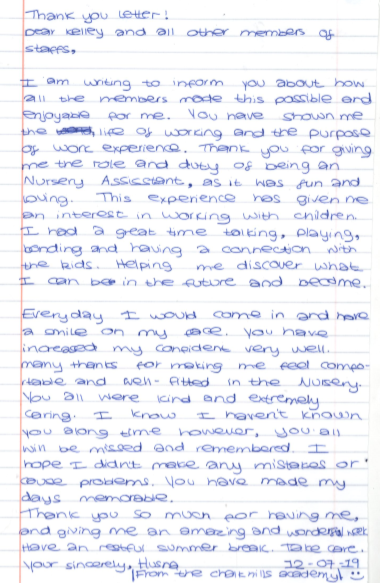 Thank you letter!
Dear Kelley and all other members of
staffs,
I am writing to inform you about how
all the members made this possible and
enjoyable for me. You have shown me
the life of working and the purpose
of work experience. Thank you for giving
me the role and duty of being an
Nursery Assisstant, as it was fun and
loving. This experience has given me
an interest in working with children.
I had a great time talking, playing,
bonding and having a connection with
the kids. Helping me discover what
I can be in the future and become.
Everyday I would come in and have
a smile on my face. You have
increased my confident very well.
many thanks for making me feel compo-
rtable and well-fitted in the Nursery.
You all were kind and extremely
caring. I know I haven't known
you along time however, you all
will be missed and remembered. I
hope I didn't make any mistakes or
cause problems. You have made my
days memorable.
Thank you so much for having me,
and giving me an amazing and wonderful week
Have an restful summer break. Take care.
Your sincerely, Husna 12-07-19
(From the chalkhills academy) :)